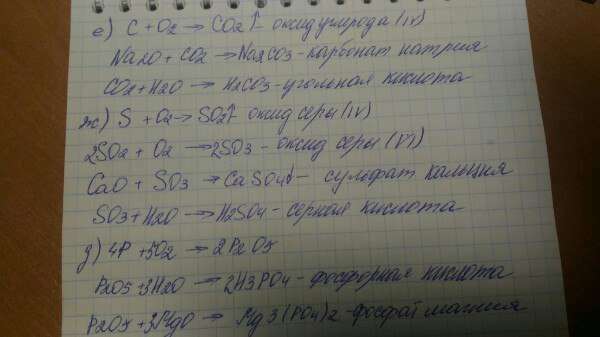 е) C + O2 → CO2↑ - оксид углерода (IV)
Na2O + CO2 → Na2CO3 - карбонат натрия
CO2 + H2O → H2CO3 - угольная кислота
ж) S + O2 → SO2↑ оксид серы (IV)
2SO2 + O2 → 2SO3 - оксид серы (VI)
CaO + SO3 → CaSO4↓ - сульфат кальция
SO3 + H2O → H2SO4 - серная кислота
д) 4P + 5O2 → 2P2O5
P2O5 + 3H2O → 2H3PO4 - фосфорная кислота
P2O5 + 3MgO → Mg3(PO4)2 - фосфат магния